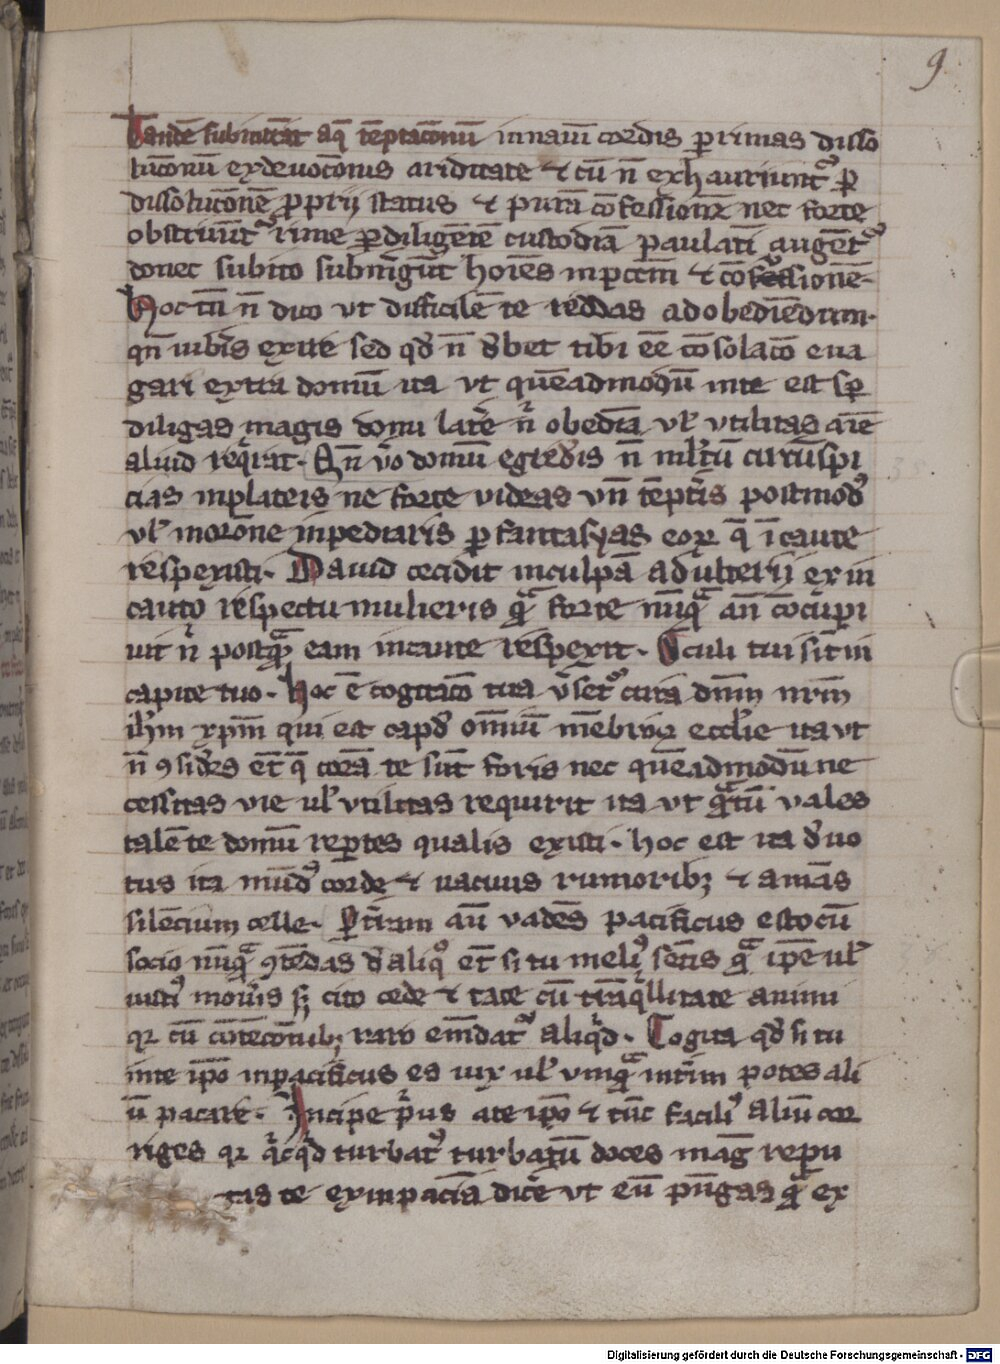 9
Tandē subintrāt aq̄ tēptac̄onū in nauī cordis ꝑ rimas disso
luc̄onū ex deuoc̄onis ariditate ⁊ cū n̄ exhauriunt᷑ ꝑ
dissoluc̄onē ꝓprij status ⁊ purā cōfessionē nec forte
obstruūt᷑ rime ꝑ diligētē custodiā paulatī augēt᷑
donec subito submērgūt hoīes in pctm̄ ⁊ cōfessionē.
Hoc tn̄ n̄ dico vt difficilē te reddas ad obediēdum.
qn̄ iuberis exire sed qd̄ n̄ debet tibi eē cōsolac̄o eua
gari extra domū ita vt quēadmodū in te est sp̄
diligas magis domi latē n̄ obediā vl̄ vtilitas aīe
aliud reqͥrat. Qn̄ vͦo domū egrederis n̄ ml̄tū circūspi
cias in plateis ne forte videas vn̄ tēpteris postmodū
vl̄ in orōne inpediaris ꝑ fantasyas eoꝝ q̄ īcaute
respexisti. Dauid cecidit in culpā adulterij ex in
cauto respectu mulieris qᷓ forte nūqᷓ an̄ cōcupi
uit n̄ postqᷓ eam incaute respexit. Oculi tui sīt in
capite tuo. Hoc ē cogitac̄o tua v̄set᷑ circa dn̄m nr̄m
ihm̄ xp̄m qui est capd̄ om̄niū mēbroꝝ eccl̄ie ita vt
n̄ ꝯsideres et̄ q̄ corā te sūt foris nec quēadmodū ne
cessitas vie ul̄ vtilitas requirit ita vt qᷓtū vales
talē te domū reportes qualis existi. hoc est ita deuo
tus ita mūdꝰ corde ⁊ vacuus rumoribꝫ ⁊ amās
silēcium celle. Ꝑ viam aū vadēs pacificus esto cū
socio nūqᷓ ꝯtēdas de aliqͦ et̄ si tu meliꝰ sētis qᷓ ip̄e ul̄
iustiꝰ moueris sꝫ cito cede ⁊ tace cū trāqͥllitate animi
qꝛ cū cōtēc̄onibꝫ raro emēdat᷑ aliqͥd. Cogita qd̄ si tu
in te ip̄o inpacificus es uix ul̄ vnqᷓ īterim potes ali
ū pacare. Incipe pͥus a te ip̄o ⁊ tūc faciliꝰ aliū cor
riges qꝛ qͥcqͥd turbat᷑ turbatū doces maḡ repu
tas te ex inpaciā dic̄e vt eū pūgas qᷓ ex
Digitalisierung gefördert durch die Deutsche Forschungsgemeinschaft - DFG